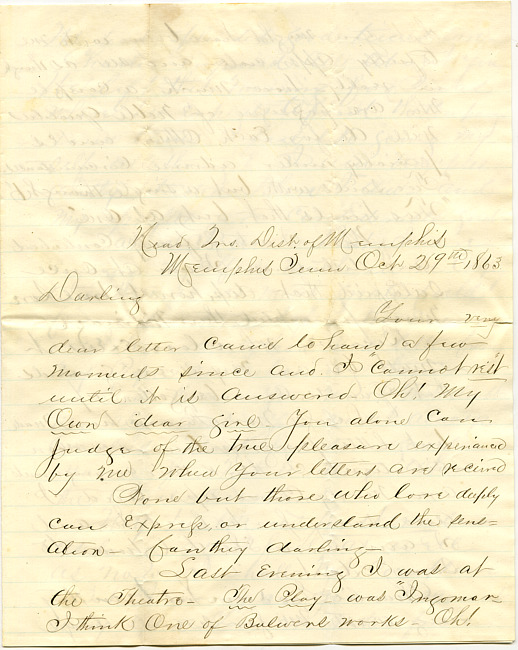 Head Qrs. Dist. of Memphis
Memphis Tenn Oct 29th 1863
Darling
Your very
dear letter came to hand a few
moments since and I "cannot rest"
until it is answered - Oh! My
Own dear girl. You alone can
judge of the true pleasure experianced
by me when Your letters are recieved
None but those who love deeply
can Express, or understand the sens-
ation - Can they darling -
Last Evening I was at
the Theatre - The Play - was "Ingomar -
I think One of Bulwers works - Oh!